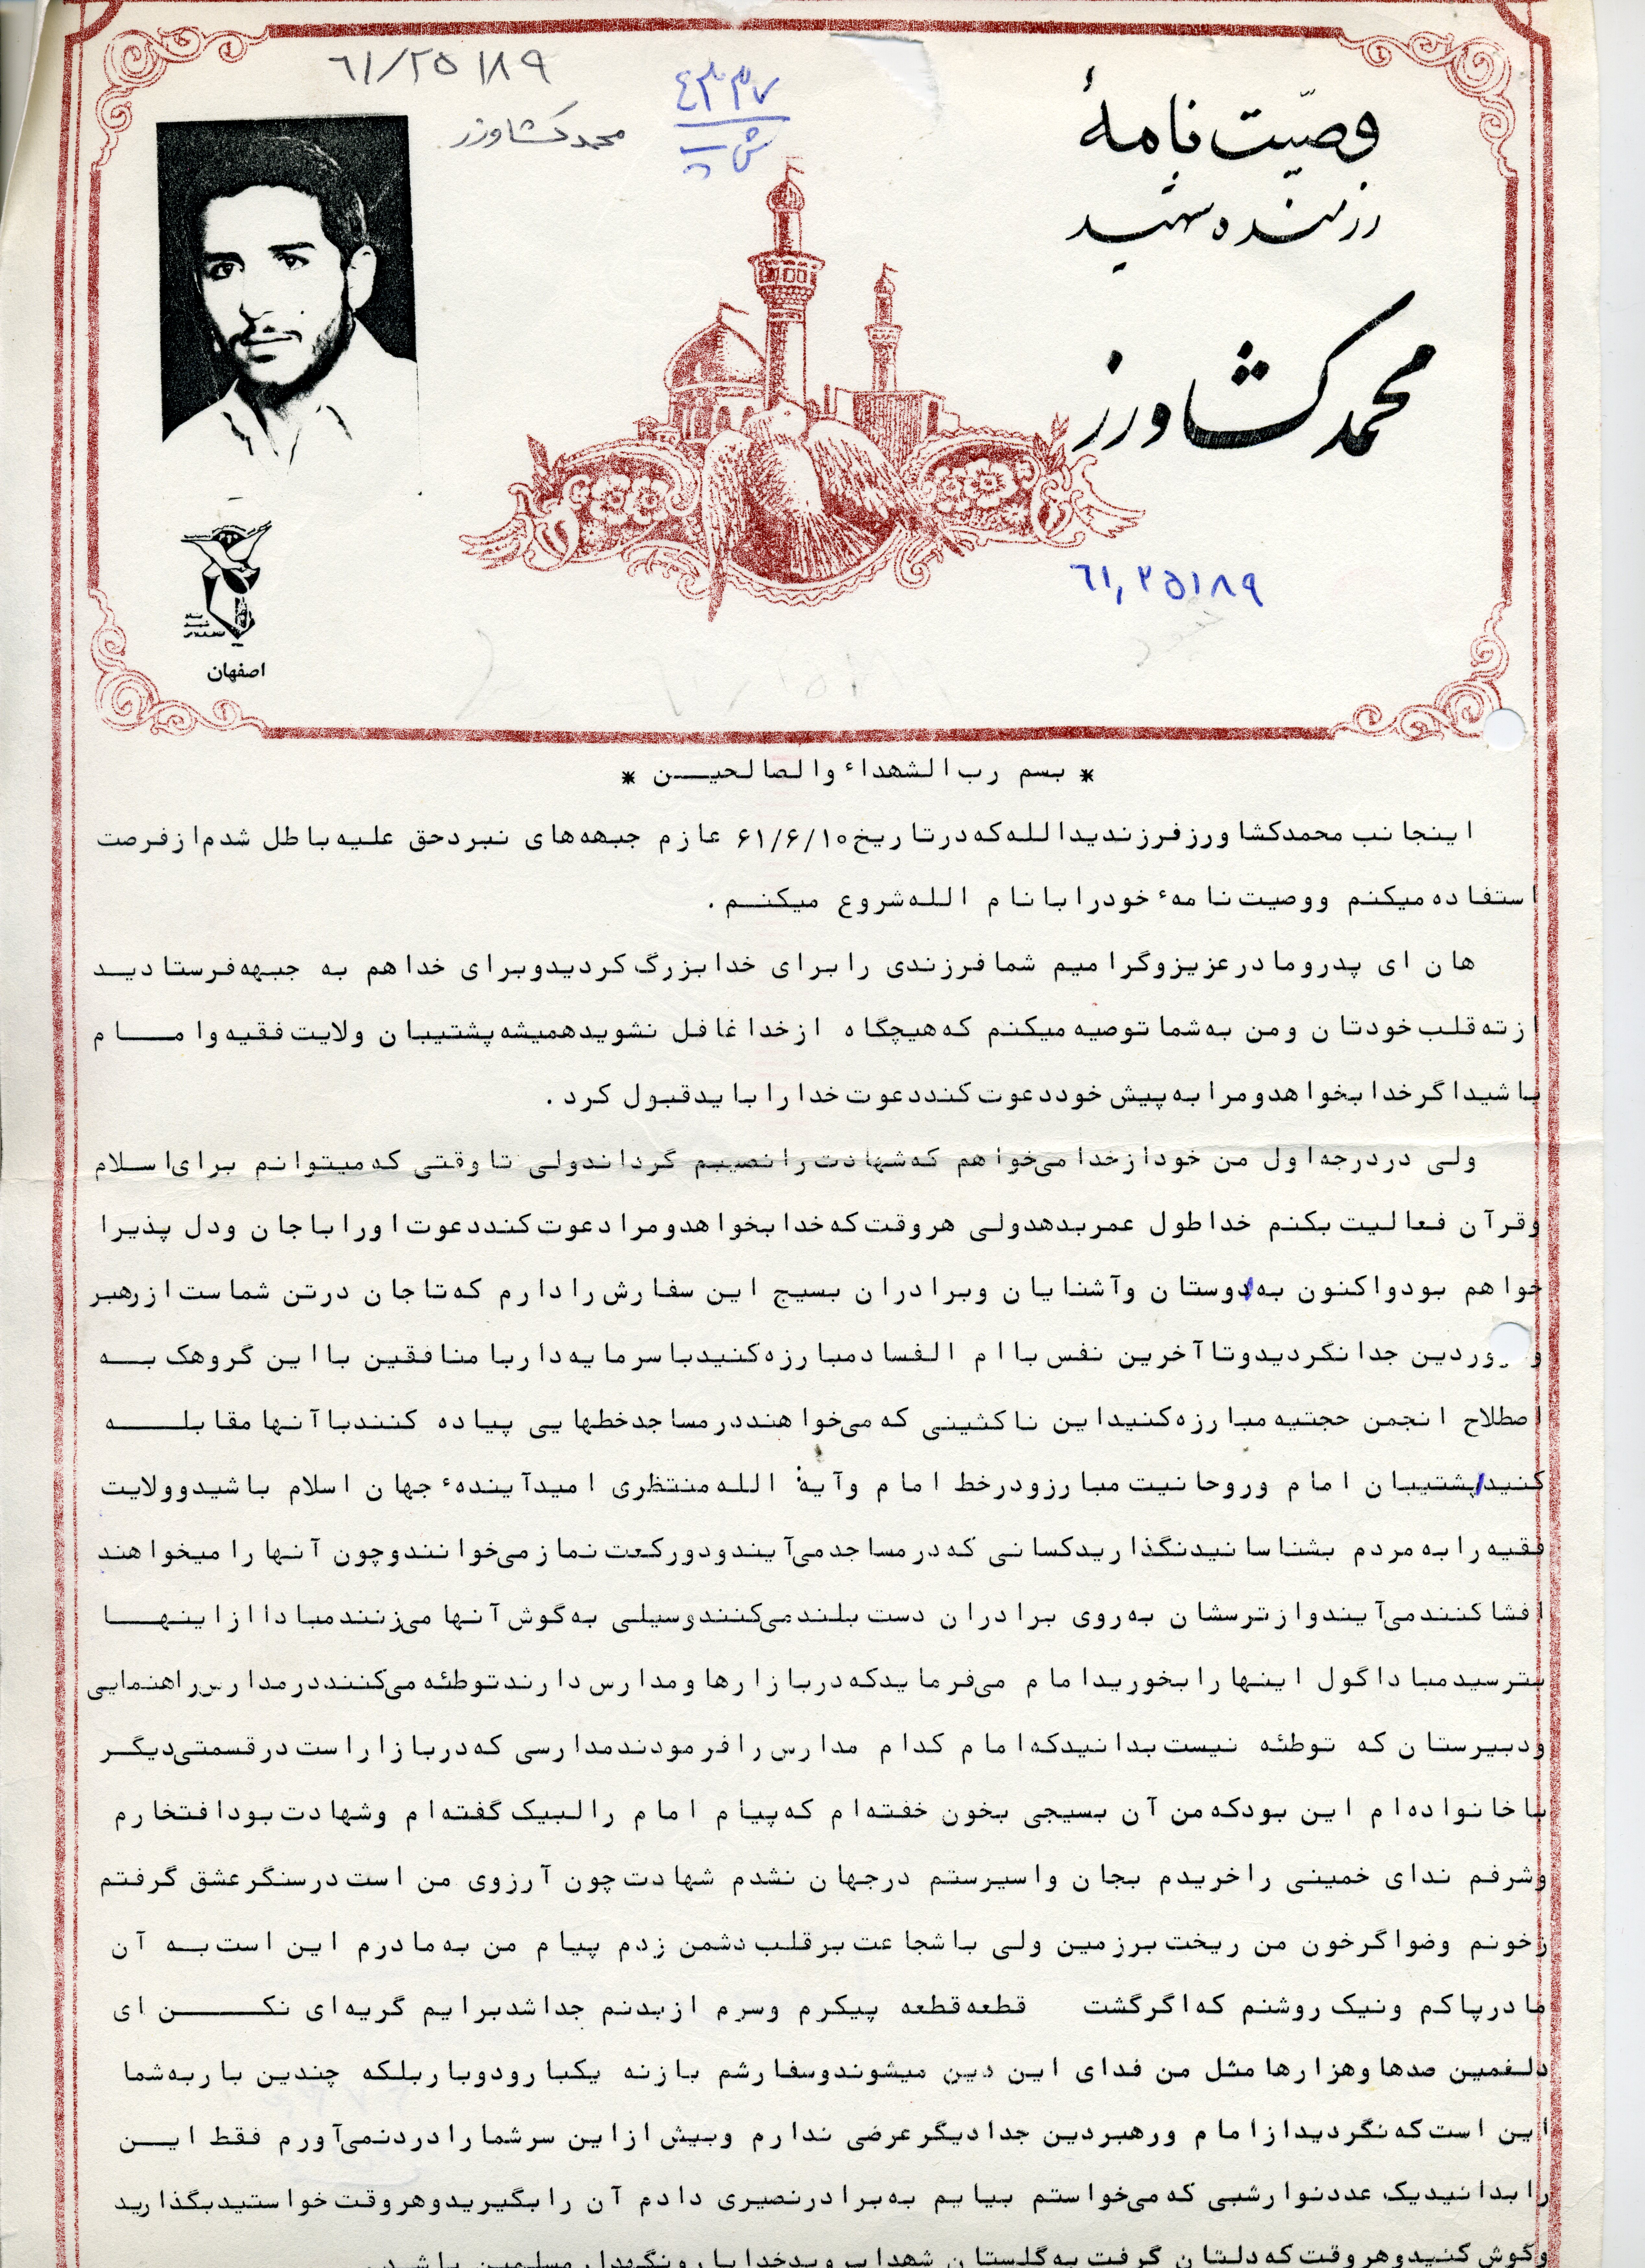 ۶۱/۲۵۱۸۹
محمد کشاورز
۴۳۳۷
ش
وصیّت نامهٔ
رزمنده شهید
محمد کشاورز
۶۱,۲۵۱۸۹
اصفهان
* بسم رب الشهداء والصالحیــن *
اینجانب محمدکشاورزفرزندیدالله‌که‌درتاریخ۶۱/۶/۱۰ عازم جبهه‌های نبردحق علیه‌باطل شدم‌ازفرصت
استفاده‌میکنم ووصیت‌نامهء خودرابانام الله‌شروع میکنـم .
هان ای پدرومادرعزیزوگرامیم شمافرزندی رابرای خدابزرگ‌کردیدوبرای خداهم به جبهه‌فرستادیـد
ازته‌قلب‌خودتان ومن به‌شماتوصیه‌میکنم که‌هیچگاه ازخداغافل نشویدهمیشه‌پشتیبان ولایت‌فقیه‌وامــام
باشیداگرخدابخواهدومرابه‌پیش خوددعوت‌کنددعوت‌خدارابایدقبول کرد .
ولی دردرجه‌اول من خودازخدامی‌خواهم که‌شهادت‌رانصیبم گرداندولی تاوقتی که‌میتوانم برای‌اسلام
وقرآن فعالیت‌بکنم خداطول عمربدهدولی هروقت‌که‌خدابخواهدومرادعوت‌کنددعوت‌اوراباجان ودل پذیرا
خواهم بودواکنون به‌دوستان وآشنایان وبرادران بسیج این سفارش‌رادارم که‌تاجان درتن شماست‌ازرهبر
وردین جدانگردیدوتاآخرین نفس باام الفسادمبارزه‌کنیدباسرمایه‌داربامنافقین بااین گروهک‌بــه
اصطلاح انجمن حجتیه‌مبارزه‌کنیداین ناکثینی که‌می‌خواهنددرمساجدخطهایی پیاده کنندباآنهامقابلــه
کنید/پشتیبان امام وروحانیت‌مبارزودرخط امام وآیة الله‌منتظری امیدآیندهء جهان اسلام باشیدوولایت
فقیه‌رابه‌مردم بشناسانیدنگذاریدکسانی که‌درمساجدمی‌آیندودورکعت‌نمازمی‌خوانندوچون آنهارامیخواهند
افشاکنندمی‌آیندوازترسشان به‌روی برادران دست‌بلندمی‌کنندوسیلی به‌گوش‌آنهامی‌زنندمباداازاینهــا
بترسیدمباداگول اینهارابخوریدامام می‌فرمایدکه‌دربازارهاومدارس‌دارندتوطئه‌می‌کننددرمدارس‌راهنمایی
ودبیرستان که توطئه نیست‌بدانیدکه‌امام کدام مدارس‌رافرمودندمدارسی که‌دربازاراست‌درقسمتی‌دیگـر
باخانواده‌ام این بودکه‌من آن بسیجی بخون خفته‌ام که‌پیام امام رالبیک‌گفته‌ام وشهادت‌بودافتخارم
وشرفم ندای خمینی راخریدم بجان واسیرستم درجهان نشدم شهادت‌چون آرزوی من است‌درسنگرعشق گرفتم
زخونم وضواگرخون من ریخت‌برزمین ولی باشجاعت‌برقلب‌دشمن زدم پیام من به‌مادرم این است‌بـه آن
مادرپاکم ونیک‌روشنم که‌اگرگشت قطعه‌قطعه پیکرم وسرم ازبدنم جداشدبرایم گریه‌ای نکــن ای
دلغمین صدهاوهزارهامثل من فدای این دین میشوندوسفارشم بازنه یکبارودوباربلکه چندین باربه‌شما
این است‌که‌نگردیدازامام ورهبردین جدادیگرعرضی ندارم وبیش ازاین سرشمارادردنمی‌آورم فقط ایــن
رابدانیدیک‌عددنوارشبی که‌می‌خواستم بیایم به‌برادرنصیری دادم آن رابگیریدوهروقت‌خواستیدبگذارید
وگوش کنیدوهروقت‌که‌دلتان گرفت‌به‌گلستان شهدابرویدخدایارونگهدار مسلمین باشد.